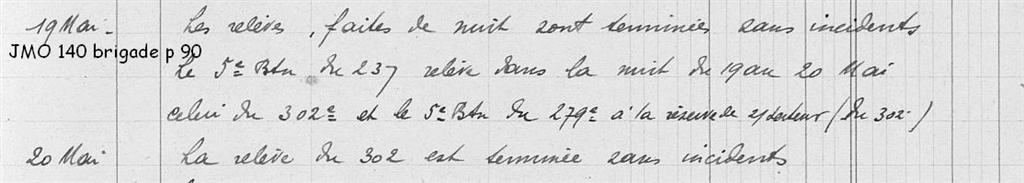 19 Mai - Les relèves, faites de nuit sont terminées sans incidents
JMO 140 brigade p 90
Le 5e Btn du 237 relève dans la nuit du 19 au 20 Mai
celui du 302e et le 5e Btn du 279e à la réserve de s/secteur (du 302 )
20 Mai La relève du 302 est terminée sans incidents